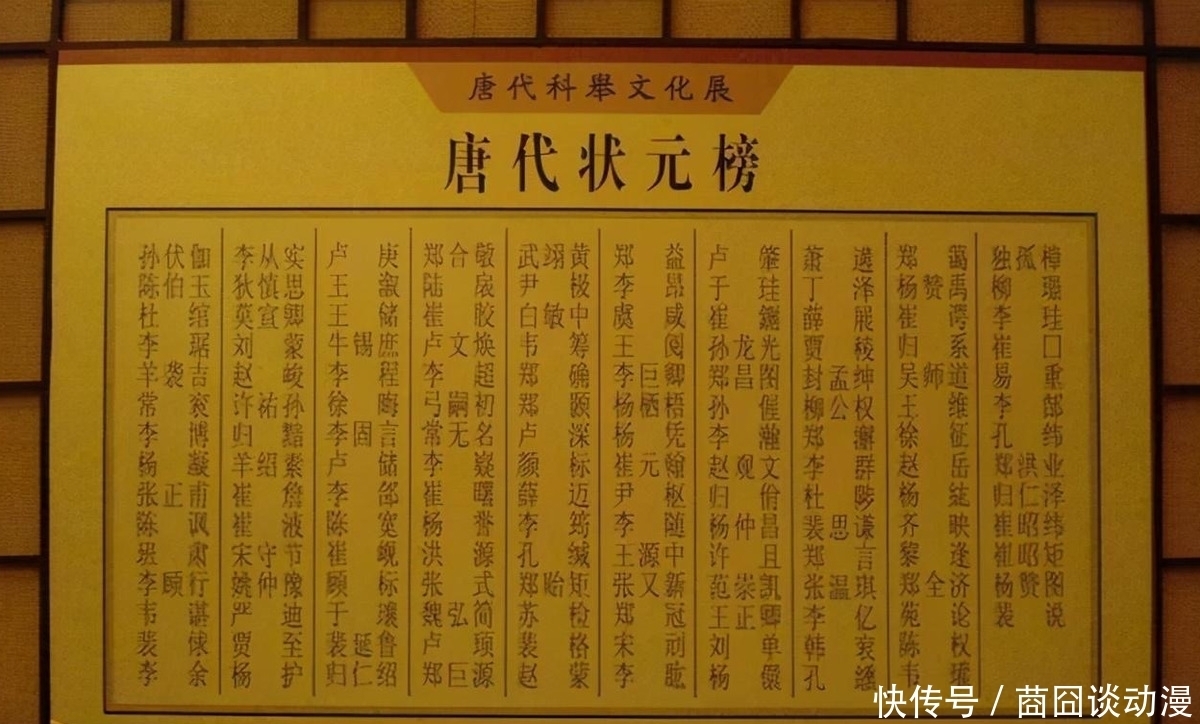 唐代科举文化展
唐代状元榜
孙伏伽
陈伯玉
杜绾
李琚
羊袭吉
常衮
李博
杨凝
张正甫
陈讽
班肃
李顾行
韦谌
裴俅
李余
李从实
狄慎思
莫宣卿
刘蒙
赵峻
许祐孙
归黯
羊绍素
崔詹
崔液
宋守节
姚仲豫
严迪
贾至
杨护
卢庚
王溆
王储
牛锡庶
李程
徐晦
李固言
卢储
李郃
陈宽
崔岘
顾标
于瓌
裴延鲁
归仁绍
郑合敬
陆扆
崔胶
卢文焕
李超
弓嗣初
常无名
李嶷
崔曙
杨誉
洪源
张式
魏弘简
卢顼
郑巨源
武翊黄
尹极
白敏中
韦筹
郑确
郑颢
卢深
颜标
薛迈
李筠
孔缄
郑贻矩
苏检
裴格
赵蒙
郑益
李昂
虞咸
王阅
李巨卿
杨栖梧
杨凭
崔元翰
尹枢
李随
王源中
张又新
郑冠
宋邧
李肱
卢肇
于珪
崔
孙龙光
郑昌图
孙偓
李瀚
赵观文
归佾
杨仲昌
许且
范崇凯
王正卿
刘单
杨儇
萧遘
丁泽
薛展
贾稜
封孟绅
柳公权
郑澥
李群
杜陟
裴思谦
郑言
张温琪
李亿
韩衮
孔纁
郑蔼
杨赞禹
崔谔
归系
吴师道
王维
徐征
赵岳
杨纮
齐映
黎逢
郑全济
苑论
陈权
韦瓘
独孤樟
柳璟
李珪
崔口
易重
李郜
孔纬
郑洪业
归仁泽
崔昭纬
崔昭矩
杨赞图
裴说
快传号 / 茴囧谈动漫